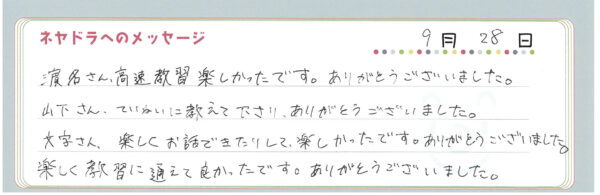 ネヤドラへのメッセージ
9月 28日
濵名さん、高速教習楽しかったです。ありがとうございました。
山下さん、ていねいに教えて下さり、ありがとうございました。
文字さん、楽しくお話できたりして、楽しかったです。ありがとうございました。
楽しく教習に通えて良かったです。ありがとうございました。